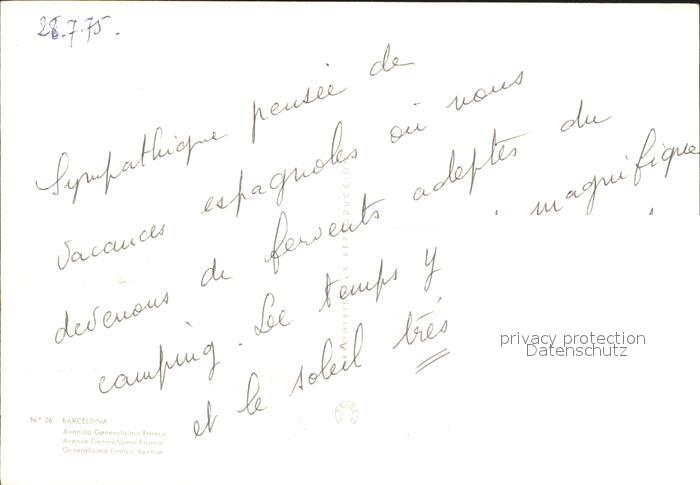 28.7.75.
Sympathique pensée de
vacances espagnoles où nous
devenons de fervents adeptes du
camping. Le temps y magnifique
et le soleil très
privacy protection
Datenschutz
Nº 26 - BARCELONA
Avenida Generalísimo Franco
Avenue Generalísimo Franco
Generalísimo Franco Avenue